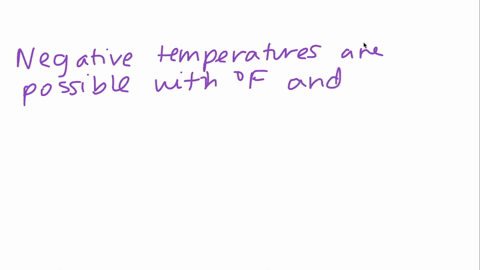 Negative temperatures are
possible with °F and